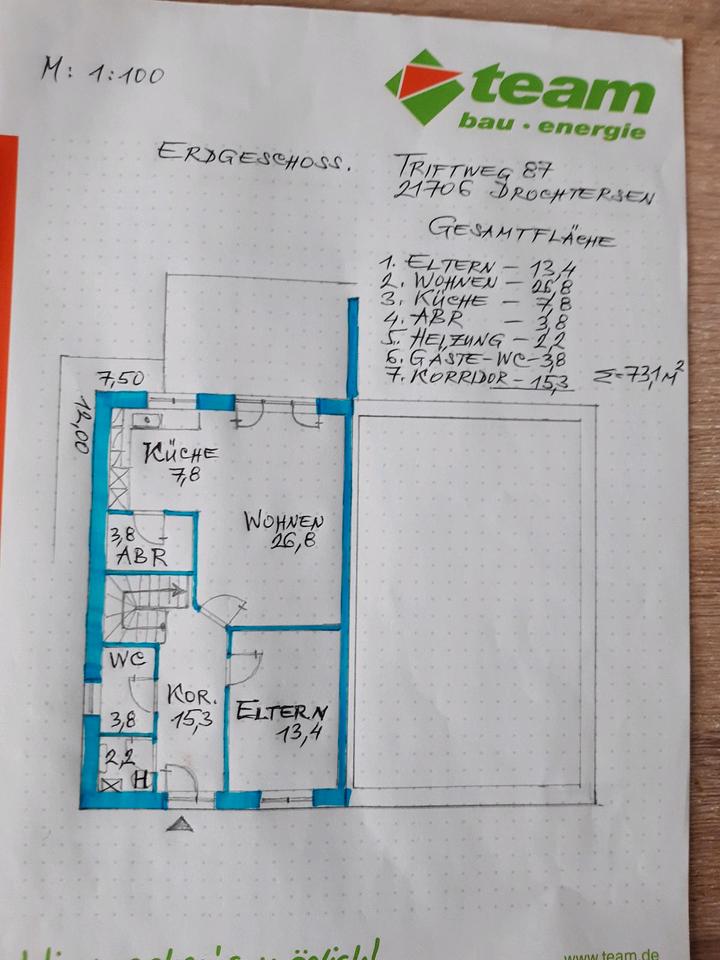 M: 1:100
team
bau · energie
ERDGESCHOSS.
TRIFTWEG 87
21706 DROCHTERSEN
GESAMTFLÄCHE
1. ELTERN – 13,4
2. WOHNEN – 26,8
3. KÜCHE – 7,8
4. ABR – 3,8
5. HEIZUNG – 2,2
6. GÄSTE-WC – 3,8
7. KORRIDOR – 15,3 Σ=73,1 M²
7,50
12,00
KÜCHE
7,8
WOHNEN
26,8
3,8
ABR
WC
3,8
KOR.
15,3
ELTERN
13,4
2,2
H
www.team.de